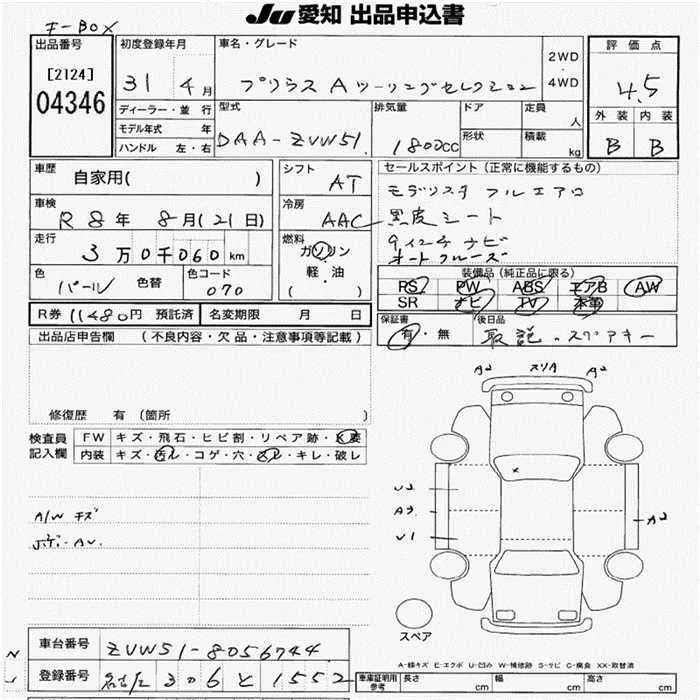 キーBOX
JU愛知 出品申込書
出品番号 初度登録年月 車名・グレード 評価点
[2124] 04346 31 4月 プリウス Aツーリングセレクション 2WD・4WD 4.5
ディーラー・並行 型式 排気量 ドア 定員 人 外装 内装
モデル年式 年 DAA-ZVW51. 1800CC 形状 積載 kg B B
ハンドル 左・右
車歴 自家用( ) シフト AT セールスポイント(正常に機能するもの)
モデリスタ フルエアロ
車検 R8年 8月(21日) 冷房 AAC 黒皮シート
走行 3万0千060km 燃料 ガソリン 9インチナビ
オートクルーズ
色 パール 色替 色コード 070 軽・油 ( ) 装備品(純正品に限る)
PS PW ABS エアB AW
SR ナビ TV 本革
R券 11480円 預託済 名変期限 月 日 保証書 有・無 後日品 取説、スペアキー
出品店申告欄 (不良内容・欠品・注意事項等記載)
修復歴 有 (箇所 )
A2 スリA A2
検査員記入欄 FW キズ・飛石・ヒビ割・リペア跡・X要
内装 キズ・汚レ・コゲ・穴・スレ・キレ・破レ
U2
A/W キズ A3 A2
ボディ-AU. U1
スペア
車台番号 ZVW51-8056744
登録番号 名古屋 306 と 1552
A-線キズ E-エクボ U-凹み W-補修跡 S-サビ C-腐食 XX-取替済
車庫証明用参考 長さ cm 幅 cm 高さ cm